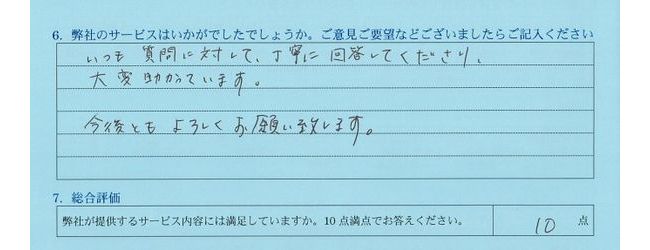 6. 弊社のサービスはいかがでしたでしょうか。ご意見ご要望などございましたらご記入ください
いつも質問に対して、丁寧に回答してくださり、
大変助かっています。
今後ともよろしくお願い致します。
7. 総合評価
弊社が提供するサービス内容には満足していますか。10点満点でお答えください。 10 点